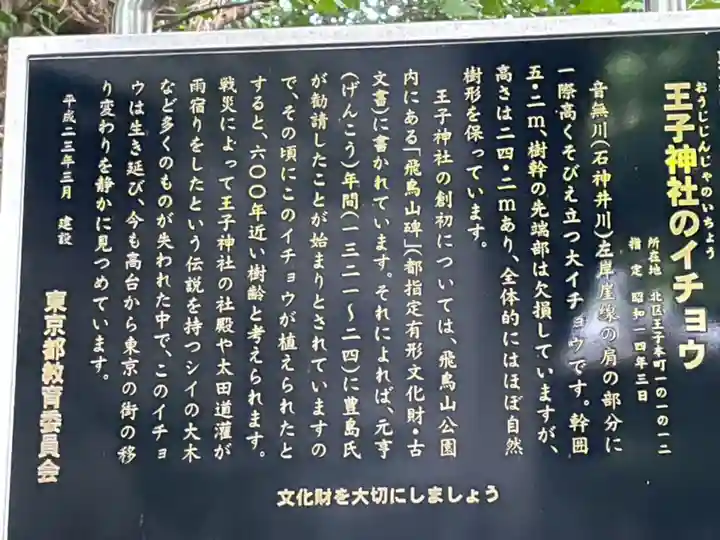 おうじじんじゃのいちょう
王子神社のイチョウ
所在地 北区王子本町一の一の一二
指定 昭和一四年三日
音無川(石神井川)左岸崖線の肩の部分に
一際高くそびえ立つ大イチョウです。幹囲
五・二m、樹幹の先端部は欠損していますが、
高さは二四・二mあり、全体的にはほぼ自然
樹形を保っています。
王子神社の創初については、飛鳥山公園
内にある「飛鳥山碑」(都指定有形文化財・古
文書)に書かれています。それによれば、元亨
(げんこう)年間(一三二一〜二四)に豊島氏
が勧請したことが始まりとされていますの
で、その頃にこのイチョウが植えられたと
すると、六〇〇年近い樹齢と考えられます。
戦災によって王子神社の社殿や太田道灌が
雨宿りをしたという伝説を持つシイの大木
など多くのものが失われた中で、このイチョ
ウは生き延び、今も高台から東京の街の移
り変わりを静かに見つめています。
平成二三年三月 建設
東京都教育委員会
文化財を大切にしましょう